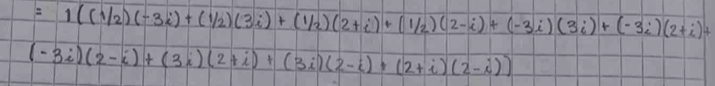 = 1((1/2)(-3i)+(1/2)(3i)+(1/2)(2+i)+(1/2)(2-i)+(-3i)(3i)+(-3i)(2+i)+
(-3i)(2-i)+(3i)(2+i)+(3i)(2-i)+(2+i)(2-i))